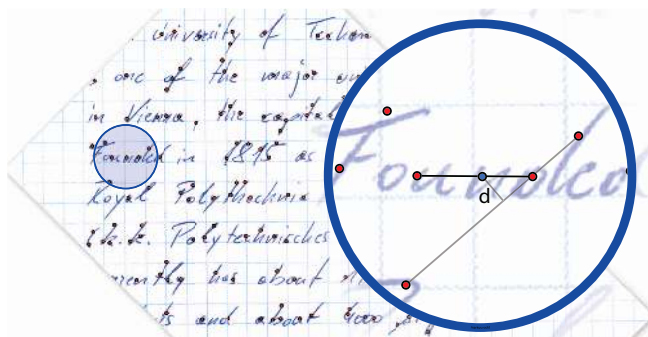 . University of Techn
, one of the major uni
in Vienna, the capital
Founded in 1815 as
Royal Polytechnic
(k.k. Polytechnisches
currently has about
ts and about 4000
Founded
d